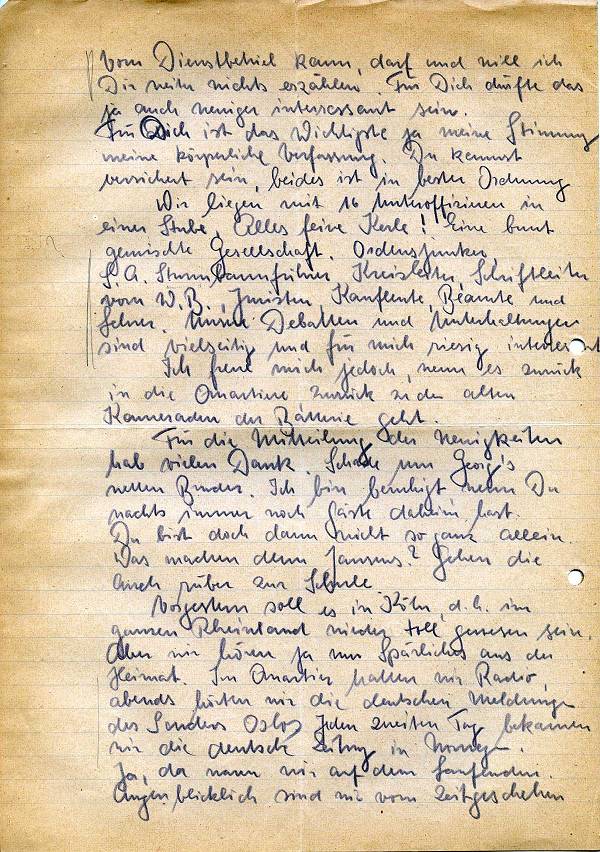 Vom Dienstbetrieb kann, darf und will ich
Dir weiter nichts erzählen. Für Dich dürfte das
ja auch weniger interessant sein.
Für Dich ist das Wichtigste ja meine Stimmung
meine körperliche Verfassung. Du kannst
versichert sein, beides ist in bester Ordnung
Wir liegen mit 16 Unteroffizieren in
einer Stube. Alles feine Kerle! Eine bunt
gemischte Gesellschaft. Ordensjunker,
S.A. Sturmbannführer Kreisleiter, Schriftleiter
vom W.B., Juristen, Kaufleute, Beamte und
Lehrer. Unsere Debatten und Unterhaltungen
sind vielseitig und für mich riesig interessant
Ich freue mich jedoch, wenn es zurück
in die Quartiere, zurück zu den alten
Kameraden der Batterie geht.
Für die Mitteilung der Neuigkeiten
hab vielen Dank. Schade um Georg's
netten Bruder. Ich bin beruhigt wenn Du
nachts immer noch Gäste daheim hast.
Du bist doch dann nicht so ganz allein.
Was machen denn Jansens? Gehen die
auch rüber zur Schule.
Vorgestern soll es in Köln, d.h. im
ganzen Rheinland wieder toll gewesen sein.
Aber wir hören ja nur Spärliches aus der
Heimat. Im Quartier hatten wir Radio,
abends hörten wir die deutschen Meldungen
des Senders Oslo. Jeden zweiten Tag bekamen
wir die deutsche Zeitung in Norwegen.
Ja, da waren wir auf dem Laufenden.
Augenblicklich sind wir vom Zeitgeschehen